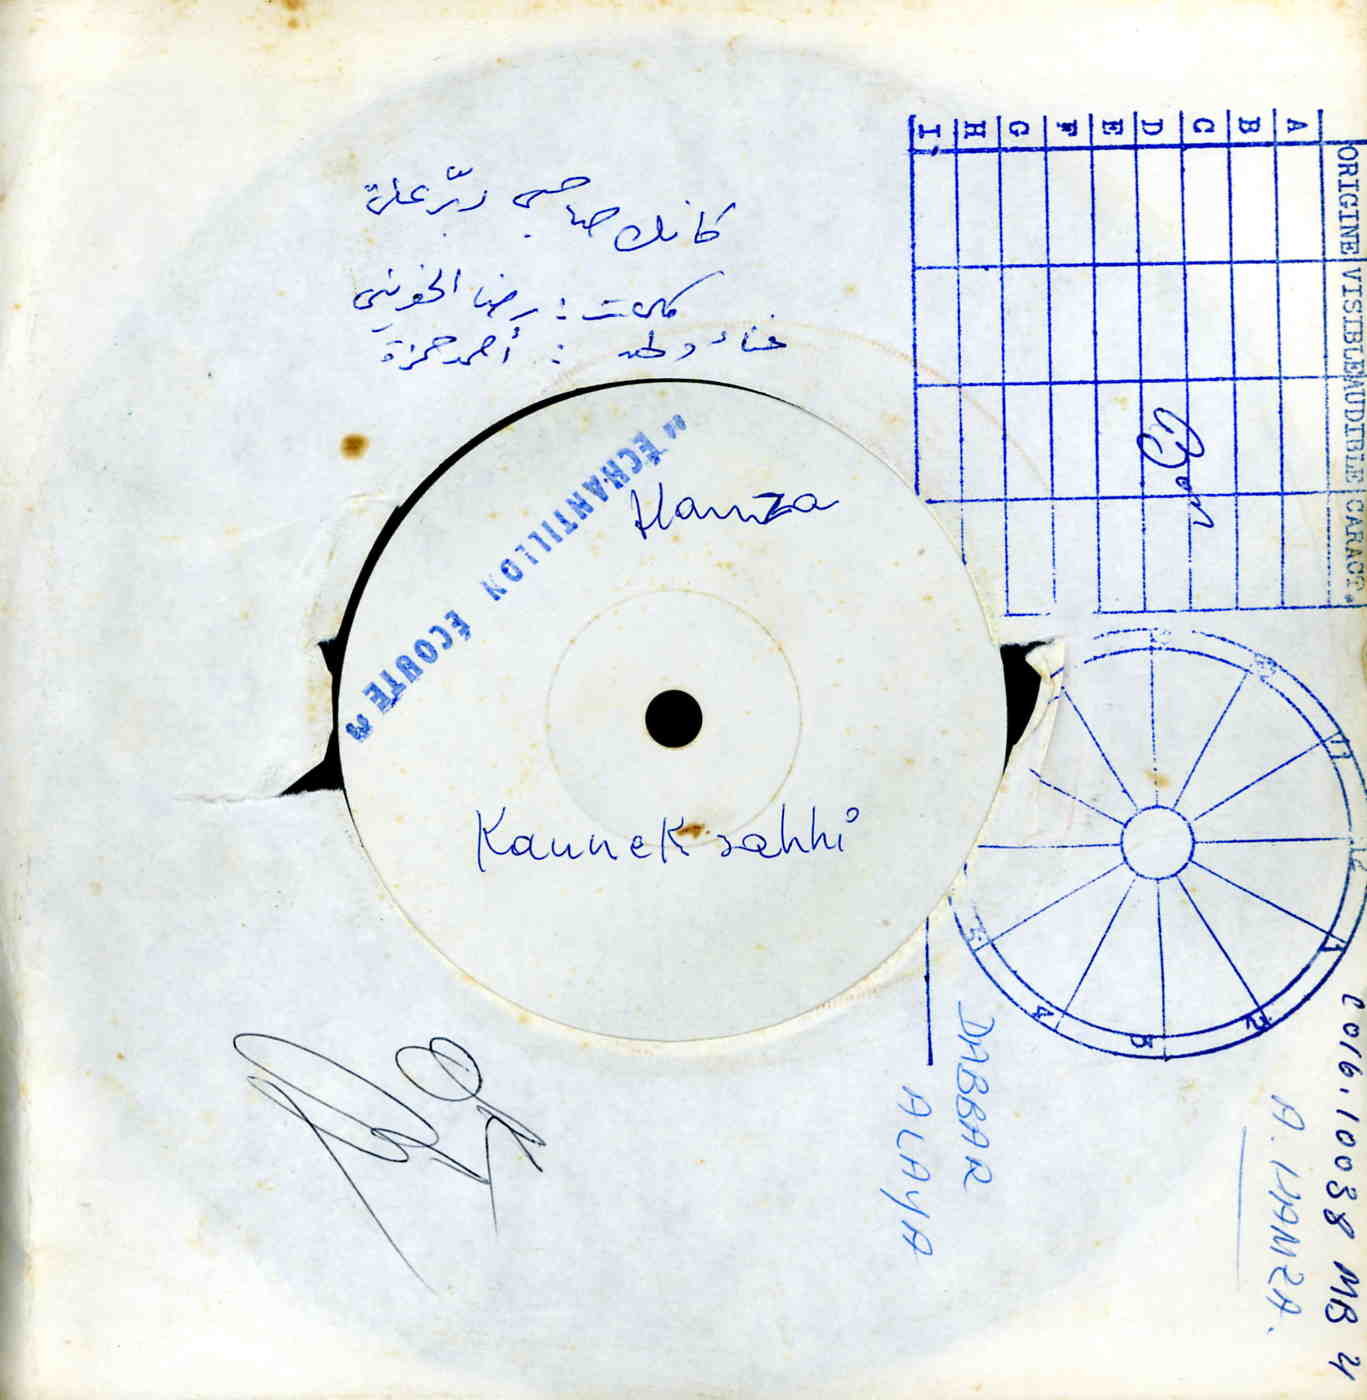 كانك صاحبي دبّر علية
كلمات : رضا الخويني
غناء ولحن : أحمد حمزة
"ECHANTILLON ECOUTE"
Hamza
Kannek sahhi
ORIGINE VISIBLE AUDIBLE CARACT.
A
B
C
D
E
F
G
H
I
Bon
11
12
1
2
3
4
5
C016.10038 MB 4
A. HAMZA.
DABBAR
ALAYA